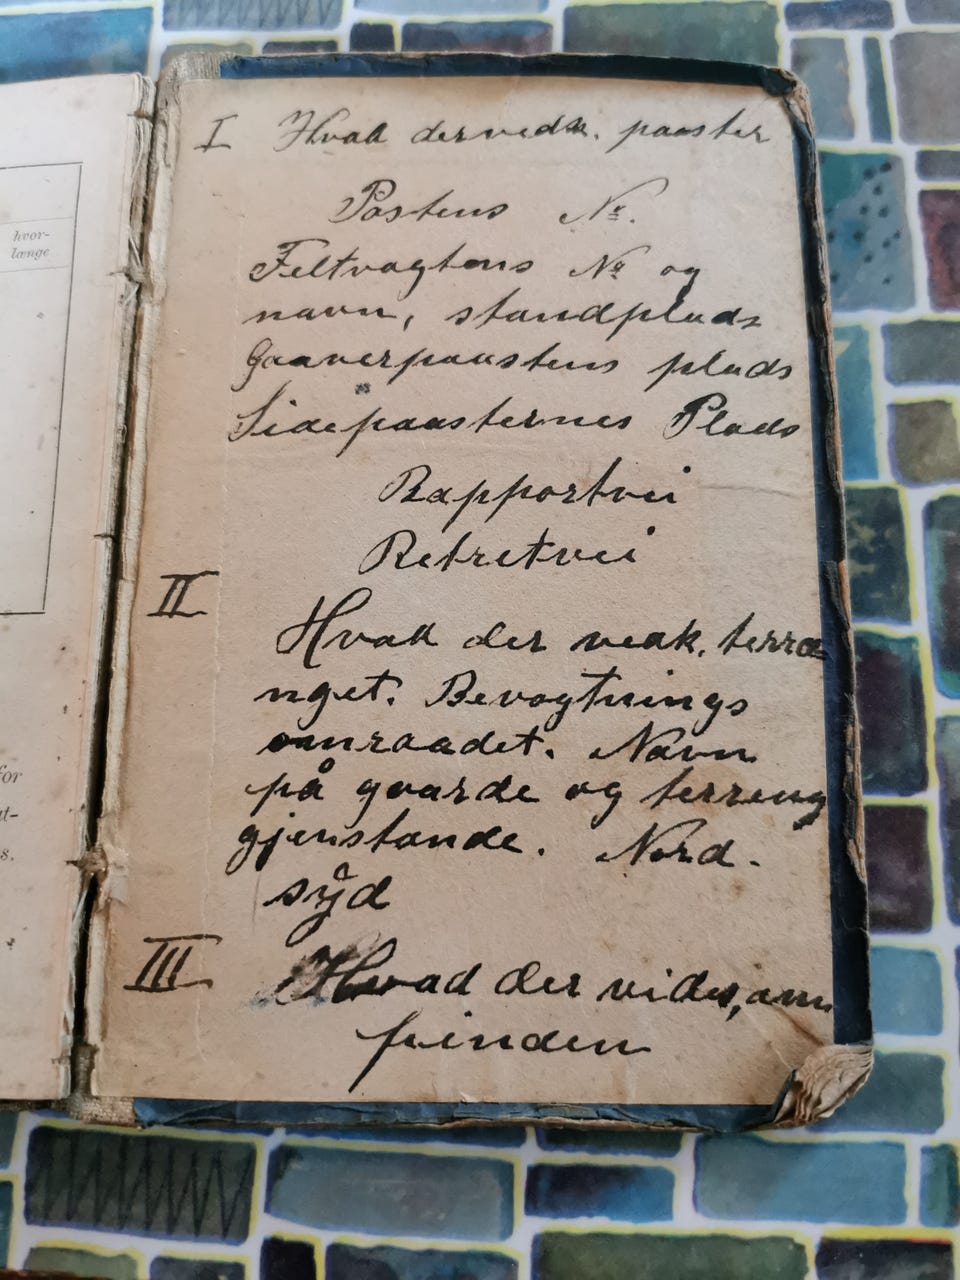 hvor-
længe
for
at-
s.
I Hvad der vedk. paaster
Postens Nr.
Feltvagtens Nr og
navn, standplads
Gaaverpaastens plads
Sidepaasternes Plads
Rapportvei
Retretvei
II
Hvad der vedk. terræ
nget. Bevogtnings
omraadet. Navn
på gaarde og terreng
gjenstande. Nord-
syd
III Hvad der vides, om
feinden